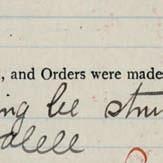 , and Orders were made
ing be stru